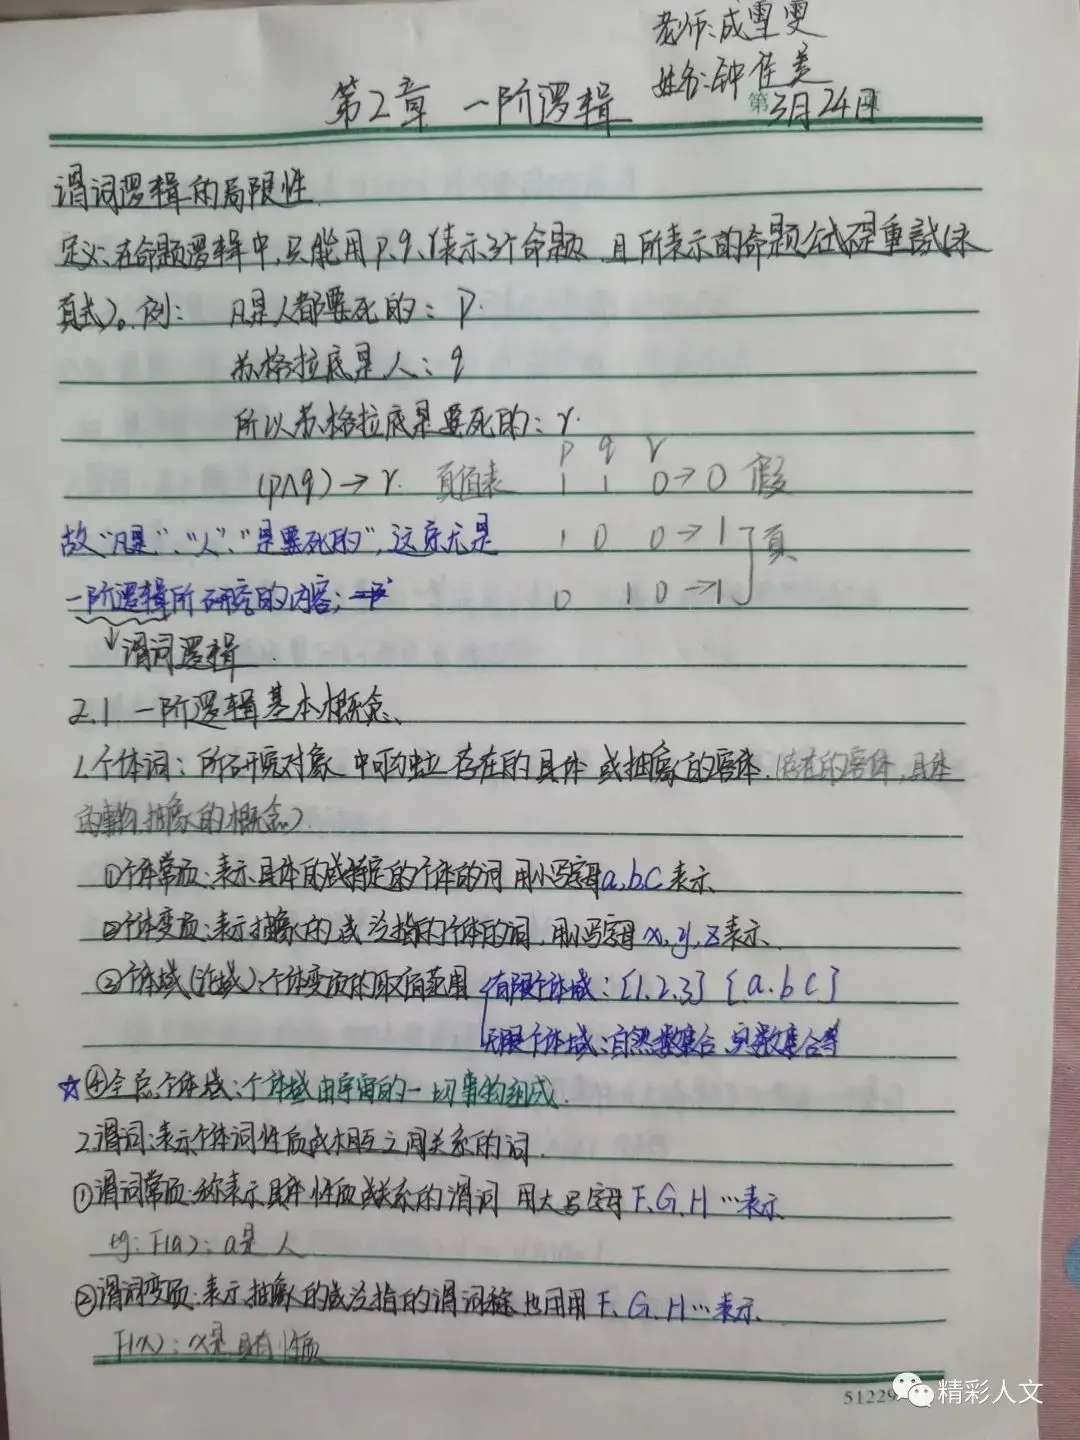 老师:成雪雯
姓名:钟佳美
第2章 一阶逻辑
第3月24日
谓词逻辑的局限性
定义:在命题逻辑中,只能用p、q、r表示3个命题,且所表示的命题公式不是重言式(永
真式)。例: 凡是人都要死的:p.
苏格拉底是人:q
所以苏格拉底是要死的:r.
p q r
(p∧q)→r. 真值表 1 1 0→0 假
故“凡是”、“人”、“是要死的”,这 是 1 0 0→1 真
一阶逻辑所研究的内容; 0 1 0→1
↓谓词逻辑
2.1 一阶逻辑基本概念、
1.个体词:所研究对象中可独立存在的具体或抽象的客体.(存在的客体,具体
的事物,抽象的概念)
①个体常项:表示具体的或特定的个体的词 用小写字母a,b,c表示
②个体变项:表示抽象的或泛指的个体的词,用小写字母x,y,z表示、
③个体域(论域):个体变项的取值范围 有限个体域:{1,2,3} {a.b c}
无限个体域:自然数集合、实数集合等
☆④全总个体域:个体域由宇宙的一切事物组成.
2.谓词:表示个体词性质或相互之间关系的词.
①谓词常项:称表示具体性质或关系的谓词 用大写字母F、G、H…表示
eg:F(a):a是人
②谓词变项:表示抽象的或泛指的谓词称 也用用F、G、H…表示
F(x):x是具有性质
51229
精彩人文